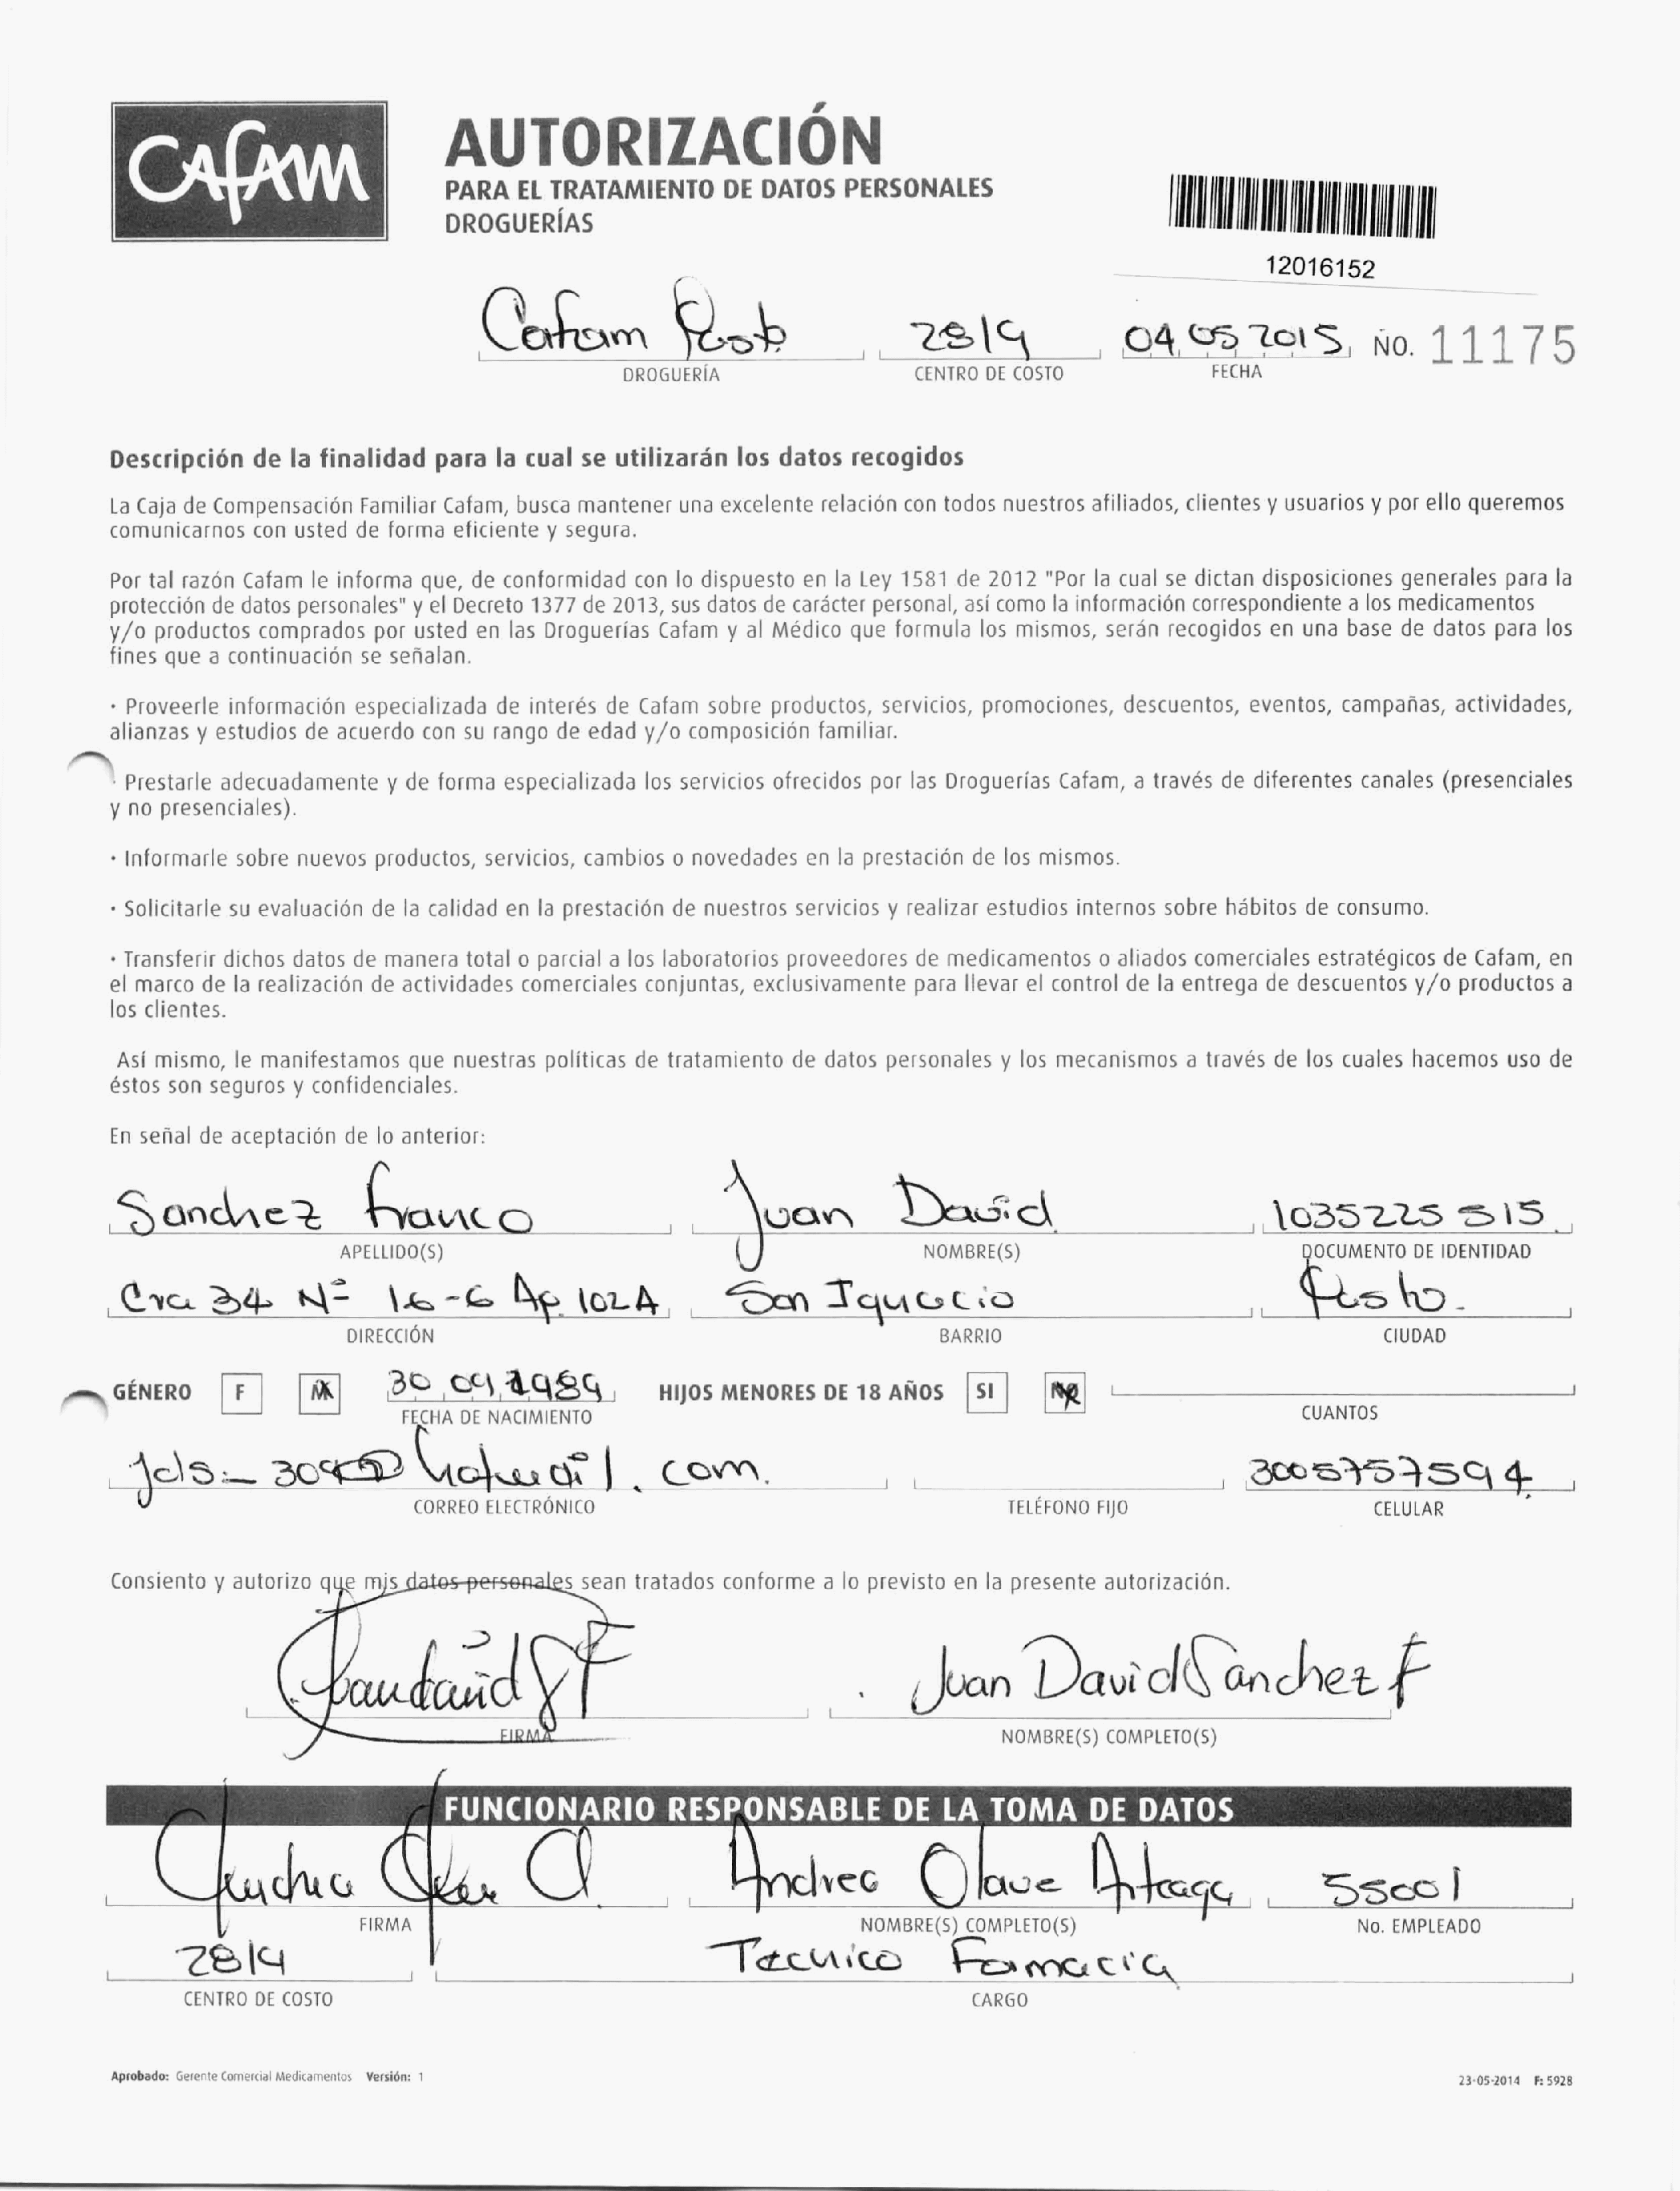 CAFAM
AUTORIZACIÓN
PARA EL TRATAMIENTO DE DATOS PERSONALES
DROGUERÍAS
12016152
Cafam Pasto 2819 04 05 2015 NO. 11175
DROGUERÍA CENTRO DE COSTO FECHA
Descripción de la finalidad para la cual se utilizarán los datos recogidos
La Caja de Compensación Familiar Cafam, busca mantener una excelente relación con todos nuestros afiliados, clientes y usuarios y por ello queremos
comunicarnos con usted de forma eficiente y segura.
Por tal razón Cafam le informa que, de conformidad con lo dispuesto en la Ley 1581 de 2012 "Por la cual se dictan disposiciones generales para la
protección de datos personales" y el Decreto 1377 de 2013, sus datos de carácter personal, así como la información correspondiente a los medicamentos
y/o productos comprados por usted en las Droguerías Cafam y al Médico que formula los mismos, serán recogidos en una base de datos para los
fines que a continuación se señalan.
· Proveerle información especializada de interés de Cafam sobre productos, servicios, promociones, descuentos, eventos, campañas, actividades,
alianzas y estudios de acuerdo con su rango de edad y/o composición familiar.
· Prestarle adecuadamente y de forma especializada los servicios ofrecidos por las Droguerías Cafam, a través de diferentes canales (presenciales
y no presenciales).
· Informarle sobre nuevos productos, servicios, cambios o novedades en la prestación de los mismos.
· Solicitarle su evaluación de la calidad en la prestación de nuestros servicios y realizar estudios internos sobre hábitos de consumo.
· Transferir dichos datos de manera total o parcial a los laboratorios proveedores de medicamentos o aliados comerciales estratégicos de Cafam, en
el marco de la realización de actividades comerciales conjuntas, exclusivamente para llevar el control de la entrega de descuentos y/o productos a
los clientes.
Así mismo, le manifestamos que nuestras políticas de tratamiento de datos personales y los mecanismos a través de los cuales hacemos uso de
éstos son seguros y confidenciales.
En señal de aceptación de lo anterior:
Sanchez Franco Juan David 1035225515
APELLIDO(S) NOMBRE(S) DOCUMENTO DE IDENTIDAD
Cra 34 Nº 16-6 Ap. 102A San Ignacio Pasto.
DIRECCIÓN BARRIO CIUDAD
GÉNERO F M 30 09 1989 HIJOS MENORES DE 18 AÑOS SI NO
FECHA DE NACIMIENTO CUANTOS
hotmail.com. 3005757594
CORREO ELECTRÓNICO TELÉFONO FIJO CELULAR
Consiento y autorizo que mis datos personales sean tratados conforme a lo previsto en la presente autorización.
Juan David Sanchez F
FIRMA NOMBRE(S) COMPLETO(S)
FUNCIONARIO RESPONSABLE DE LA TOMA DE DATOS
Andrea Olave Arteaga 55001
FIRMA NOMBRE(S) COMPLETO(S) No. EMPLEADO
2819 Tecnico Farmacia
CENTRO DE COSTO CARGO
Aprobado: Gerente Comercial Medicamentos Versión: 1 23-05-2014 F: 5928